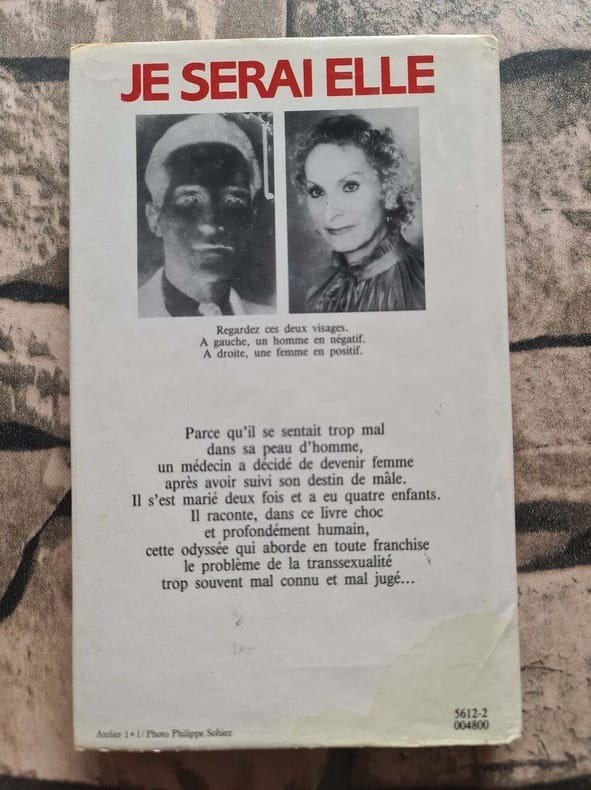 JE SERAI ELLE
Regardez ces deux visages.
A gauche, un homme en négatif.
A droite, une femme en positif.
Parce qu'il se sentait trop mal
dans sa peau d'homme,
un médecin a décidé de devenir femme
après avoir suivi son destin de mâle.
Il s'est marié deux fois et a eu quatre enfants.
Il raconte, dans ce livre choc
et profondément humain,
cette odyssée qui aborde en toute franchise
le problème de la transsexualité
trop souvent mal connu et mal jugé...
5612-2
004800
Atelier 1+1/ Photo Philippe Sohiez